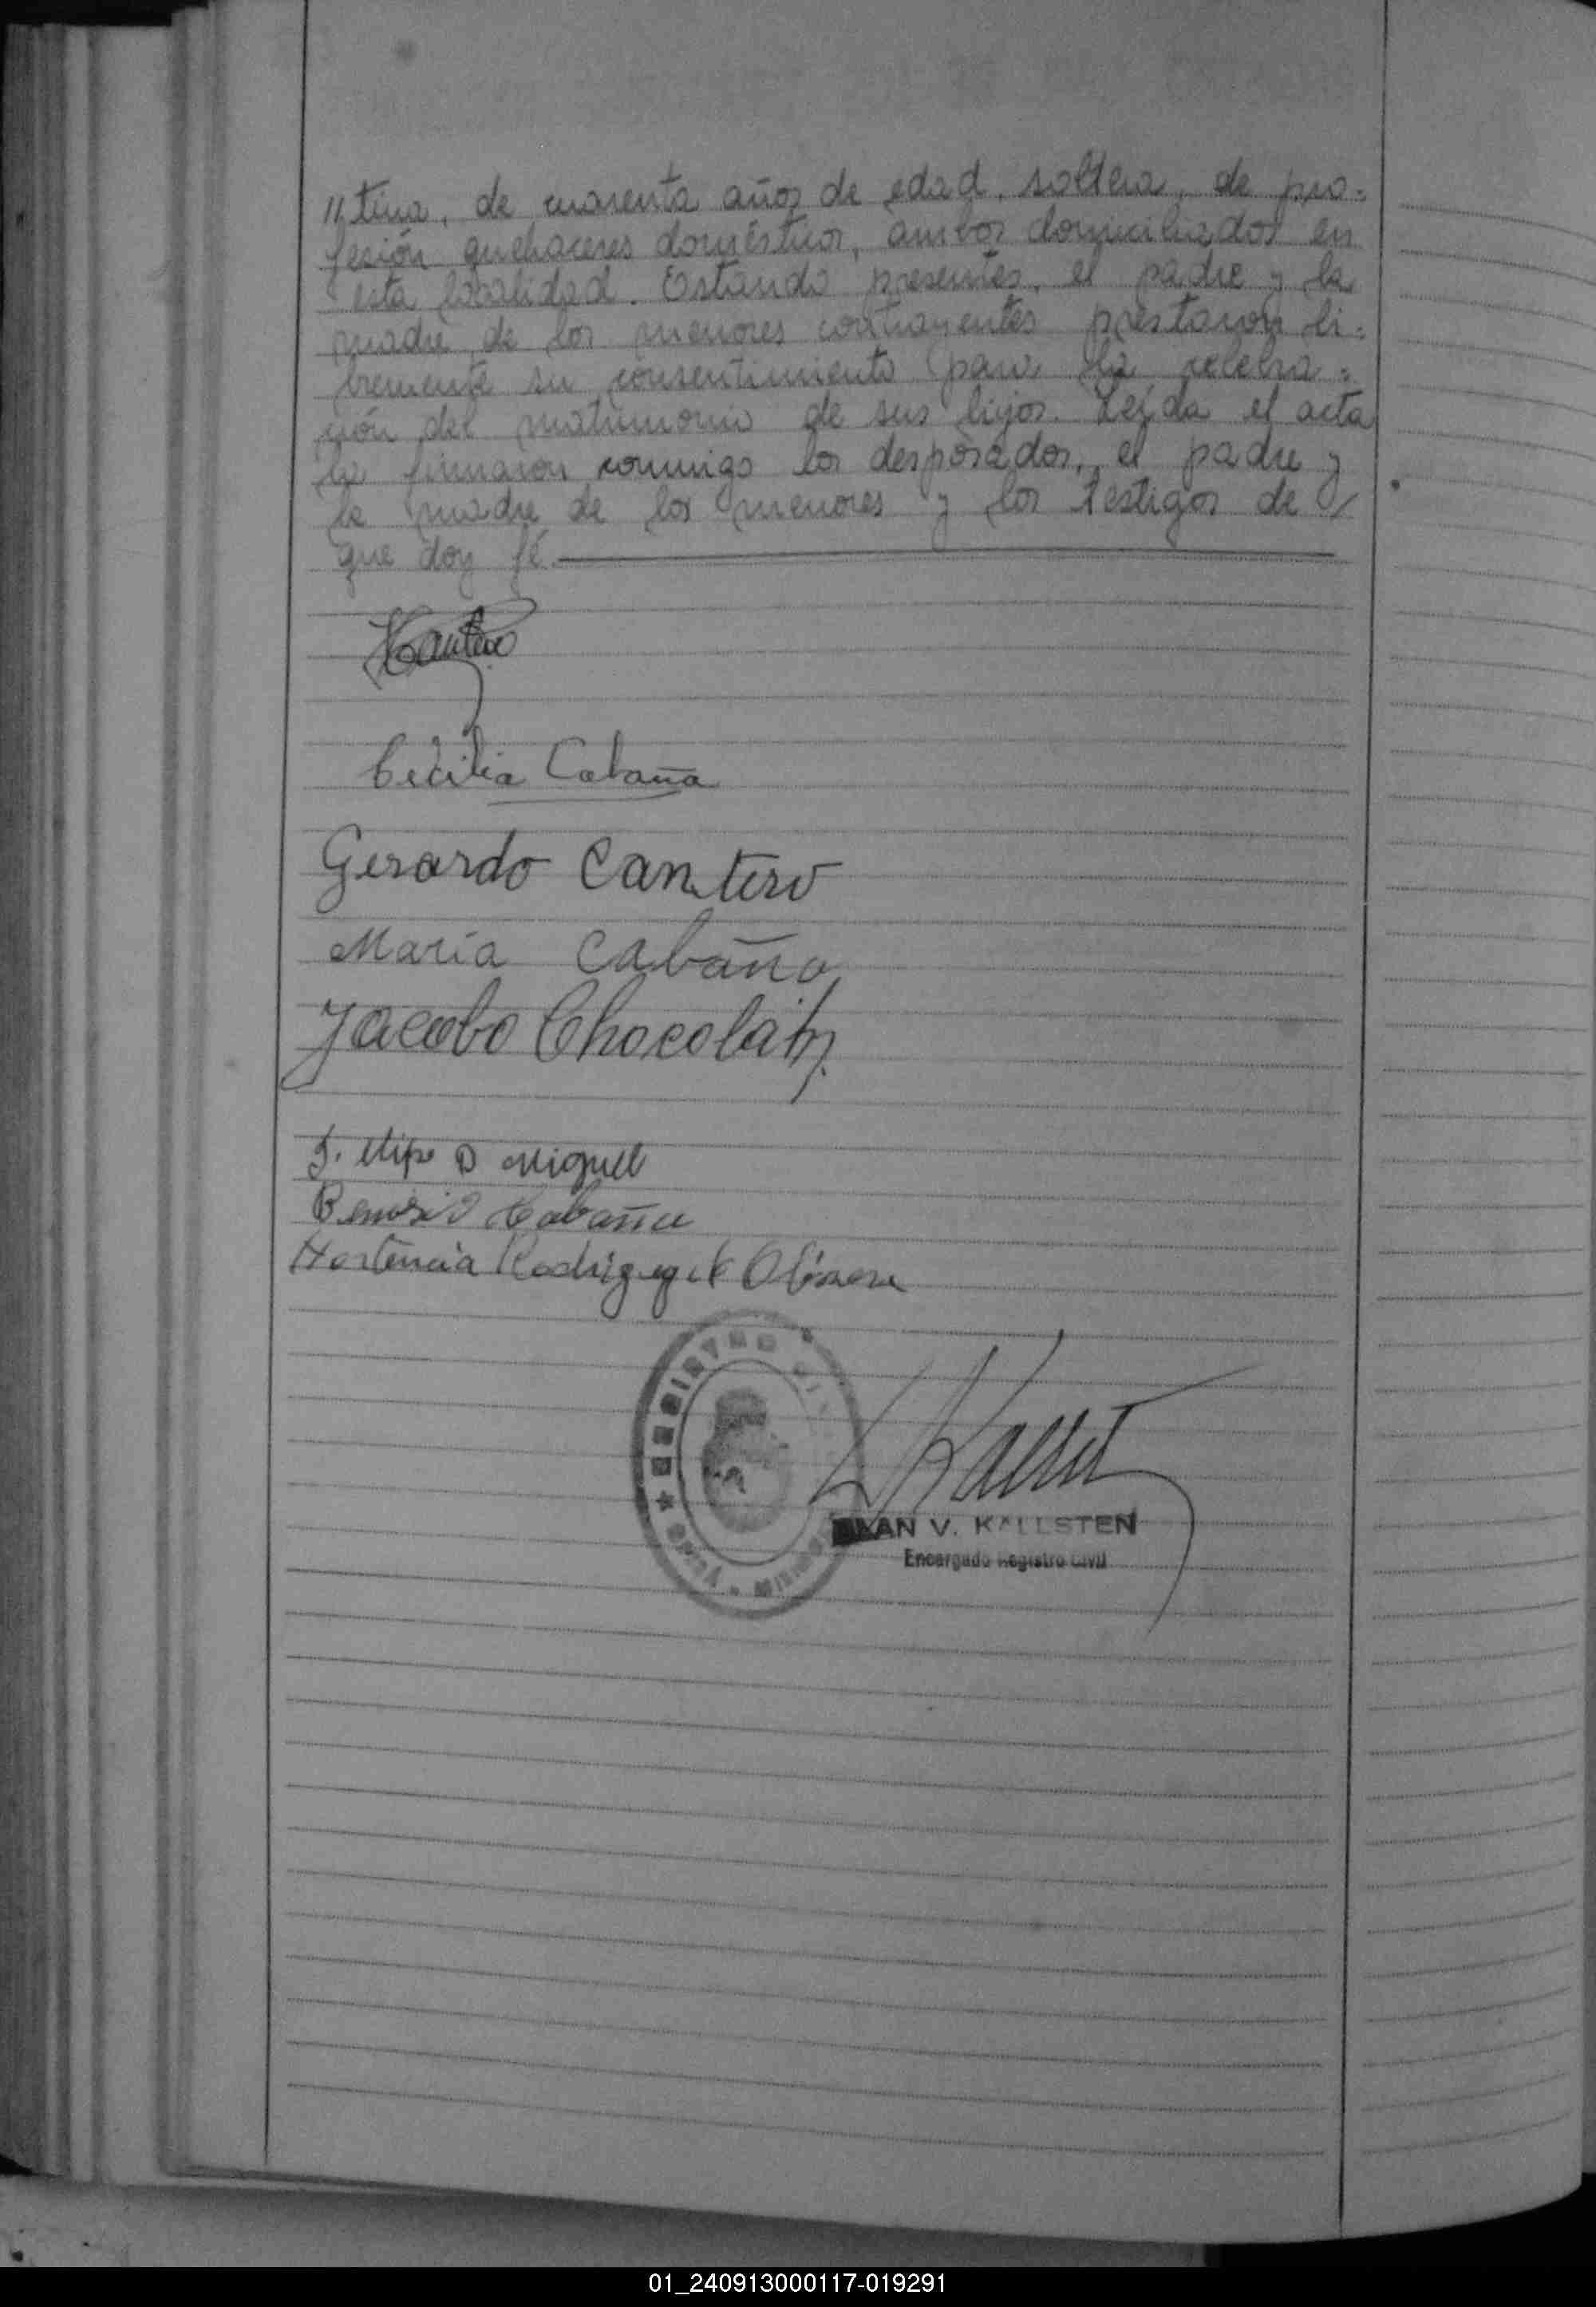 //tina, de cuarenta años de edad, soltera, de pro=
fesión quehaceres domésticos, ambos domiciliados en
esta localidad. Estando presentes, el padre y la
madre de los menores contrayentes prestaron li=
bremente su consentimiento para la celebra=
ción del matrimonio de sus hijos. Leída el acta
la firmaron conmigo los desposados, el padre y
la madre de los menores y los testigos de
que doy fé.
Cecilia Cabaña
Gerardo Cantero
María Cabaña
Jacobo
Miguel
Cabaña
Hortencia Rodriguez de
REGISTRO
V. KALLSTEN
Encargado Registro Civil
01_240913000117-019291